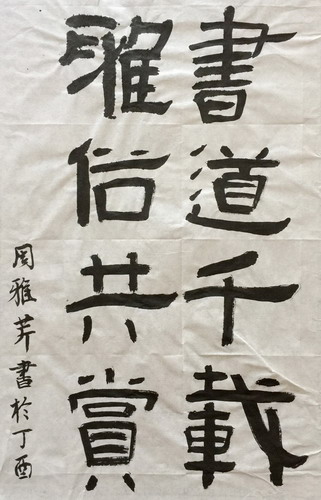 書道千載
雅俗共賞
周雅荓書於丁酉